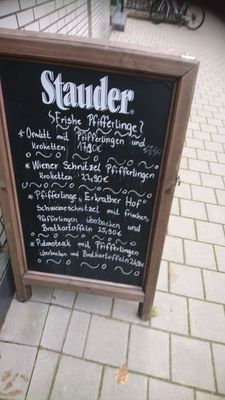 Stauder
Frishe Pfifferlinge
* Omlett mit Pfifferlingen und
Kroketten 17,90 €
* Wiener Schnitzel Pfifferlingen
Kroketten 23,90 €
* Pfifferlinge „Erkrather Hof"
Schweineschnitzel mit frischen
Pfifferlingen überbacken und
Bratkartoffeln 25,90 €
* mit Pfifferlingen
überbacken und Bratkartoffeln